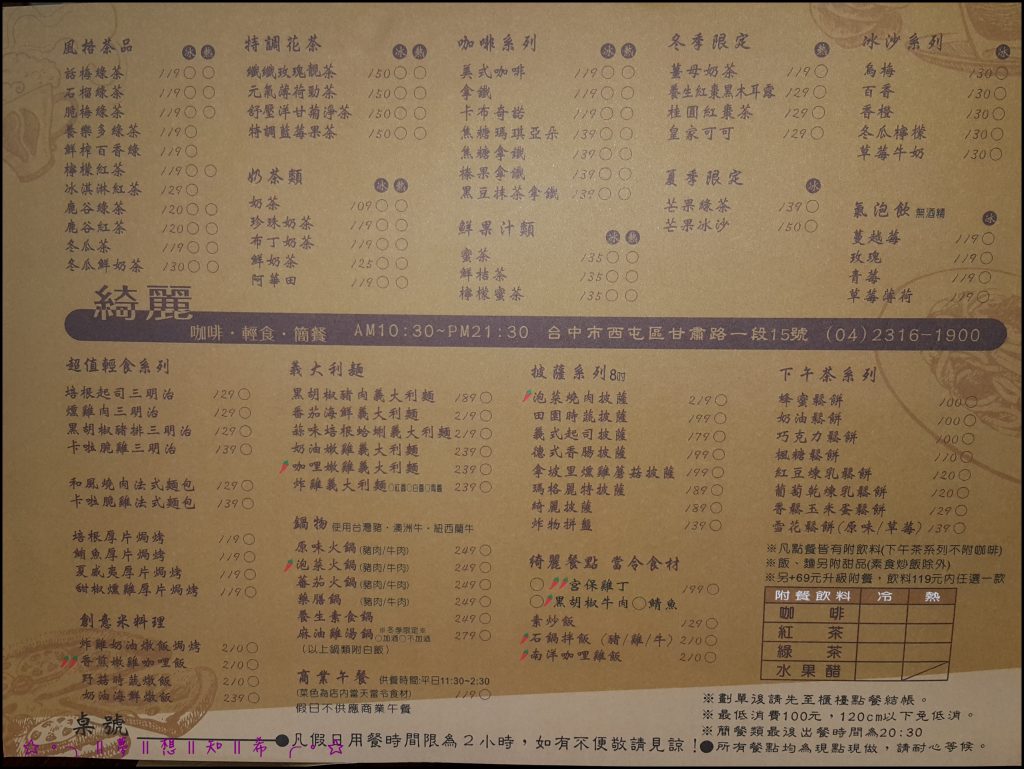 風格茶品 冰 熱
話梅綠茶 119○○
石榴綠茶 119○○
脆梅綠茶 119○○
養樂多綠茶 119○
鮮榨百香綠 119○
檸檬紅茶 119○○
冰淇淋紅茶 129○
鹿谷綠茶 120○○
鹿谷紅茶 120○○
冬瓜茶 119○○
冬瓜鮮奶茶 130○○
特調花茶 冰 熱
纖纖玫瑰靚茶 150○○
元氣薄荷勁茶 150○○
舒壓洋甘菊淨茶 150○○
特調藍莓果茶 150○○
奶茶類 冰 熱
奶茶 109○○
珍珠奶茶 119○○
布丁奶茶 119○○
鮮奶茶 125○○
阿華田 119○○
咖啡系列 冰 熱
美式咖啡 119○○
拿鐵 119○○
卡布奇諾 119○○
焦糖瑪琪亞朵 139○○
焦糖拿鐵 139○○
榛果拿鐵 139○○
黑豆抹茶拿鐵 139○○
鮮果汁類 冰 熱
蜜茶 135○○
鮮桔茶 135○○
檸檬蜜茶 135○○
冬季限定 熱
薑母奶茶 119○
養生紅棗黑木耳露 129○
桂圓紅棗茶 129○
皇家可可 129○
夏季限定 冰
芒果綠茶 139○
芒果冰沙 150○
冰沙系列 冰
烏梅 130○
百香 130○
香橙 130○
冬瓜檸檬 130○
草莓牛奶 130○
氣泡飲 無酒精 冰
蔓越莓 119○
玫瑰 119○
青莓 119○
草莓薄荷 119○
綺麗
咖啡・輕食・簡餐 AM10:30~PM21:30 台中市西屯區甘肅路一段15號 (04)2316-1900
超值輕食系列
培根起司三明治 129○
燻雞肉三明治 129○
黑胡椒豬排三明治 129○
卡啦脆雞三明治 139○
和風燒肉法式麵包 129○
卡啦脆雞法式麵包 139○
培根厚片焗烤 119○
鮪魚厚片焗烤 119○
夏威夷厚片焗烤 119○
甜椒燻雞厚片焗烤 119○
創意米料理
炸雞奶油燉飯焗烤 210○
香煎嫩雞咖哩飯 210○
野菇時蔬燉飯 210○
奶油海鮮燉飯 239○
桌號
義大利麵
黑胡椒豬肉義大利麵 189○
番茄海鮮義大利麵 219○
蒜味培根蛤蜊義大利麵 219○
奶油嫩雞義大利麵 239○
咖哩嫩雞義大利麵 239○
炸雞義大利麵○紅醬○白醬○青醬 239○
鍋物 使用台灣豬・澳洲牛・紐西蘭牛
原味火鍋(豬肉/牛肉) 249○
泡菜火鍋(豬肉/牛肉) 249○
蕃茄火鍋(豬肉/牛肉) 249○
藥膳鍋 (豬肉/牛肉) 249○
養生素食鍋 249○
麻油雞湯鍋 ※冬季限定※ ○加酒○不加酒 279○
(以上鍋類附白飯)
商業午餐 供餐時間:平日11:30~2:30
(菜色為店內當天當令食材) 119○
假日不供應商業午餐
披薩系列8吋
泡菜燒肉披薩 219○
田園時蔬披薩 199○
義式起司披薩 179○
德式香腸披薩 199○
拿坡里燻雞蘑菇披薩 199○
瑪格麗特披薩 189○
綺麗披薩 189○
炸物拼盤 139○
綺麗餐點 當令食材
○宮保雞丁 199○
○黑胡椒牛肉○鯖魚
素炒飯 129○
石鍋拌飯(豬/雞/牛) 210○
南洋咖哩雞飯 210○
下午茶系列
蜂蜜鬆餅 100○
奶油鬆餅 100○
巧克力鬆餅 100○
楓糖鬆餅 110○
紅豆煉乳鬆餅 120○
葡萄乾煉乳鬆餅 120○
香鬆玉米蛋鬆餅 129○
雪花鬆餅(原味/草莓) 139○
※凡點餐皆有附飲料(下午茶系列不附咖啡)
※飯、麵另附甜品(素食炒飯除外)
※另+69元升級附餐，飲料119元內任選一款
附餐飲料 冷 熱
咖啡
紅茶
綠茶
水果醋
※劃單後請先至櫃檯點餐結帳。
※最低消費100元，120cm以下免低消。
※簡餐類最後出餐時間為20:30
●凡假日用餐時間限為2小時，如有不便敬請見諒！●所有餐點均為現點現做，請耐心等候。
夢‖想‖知‖希